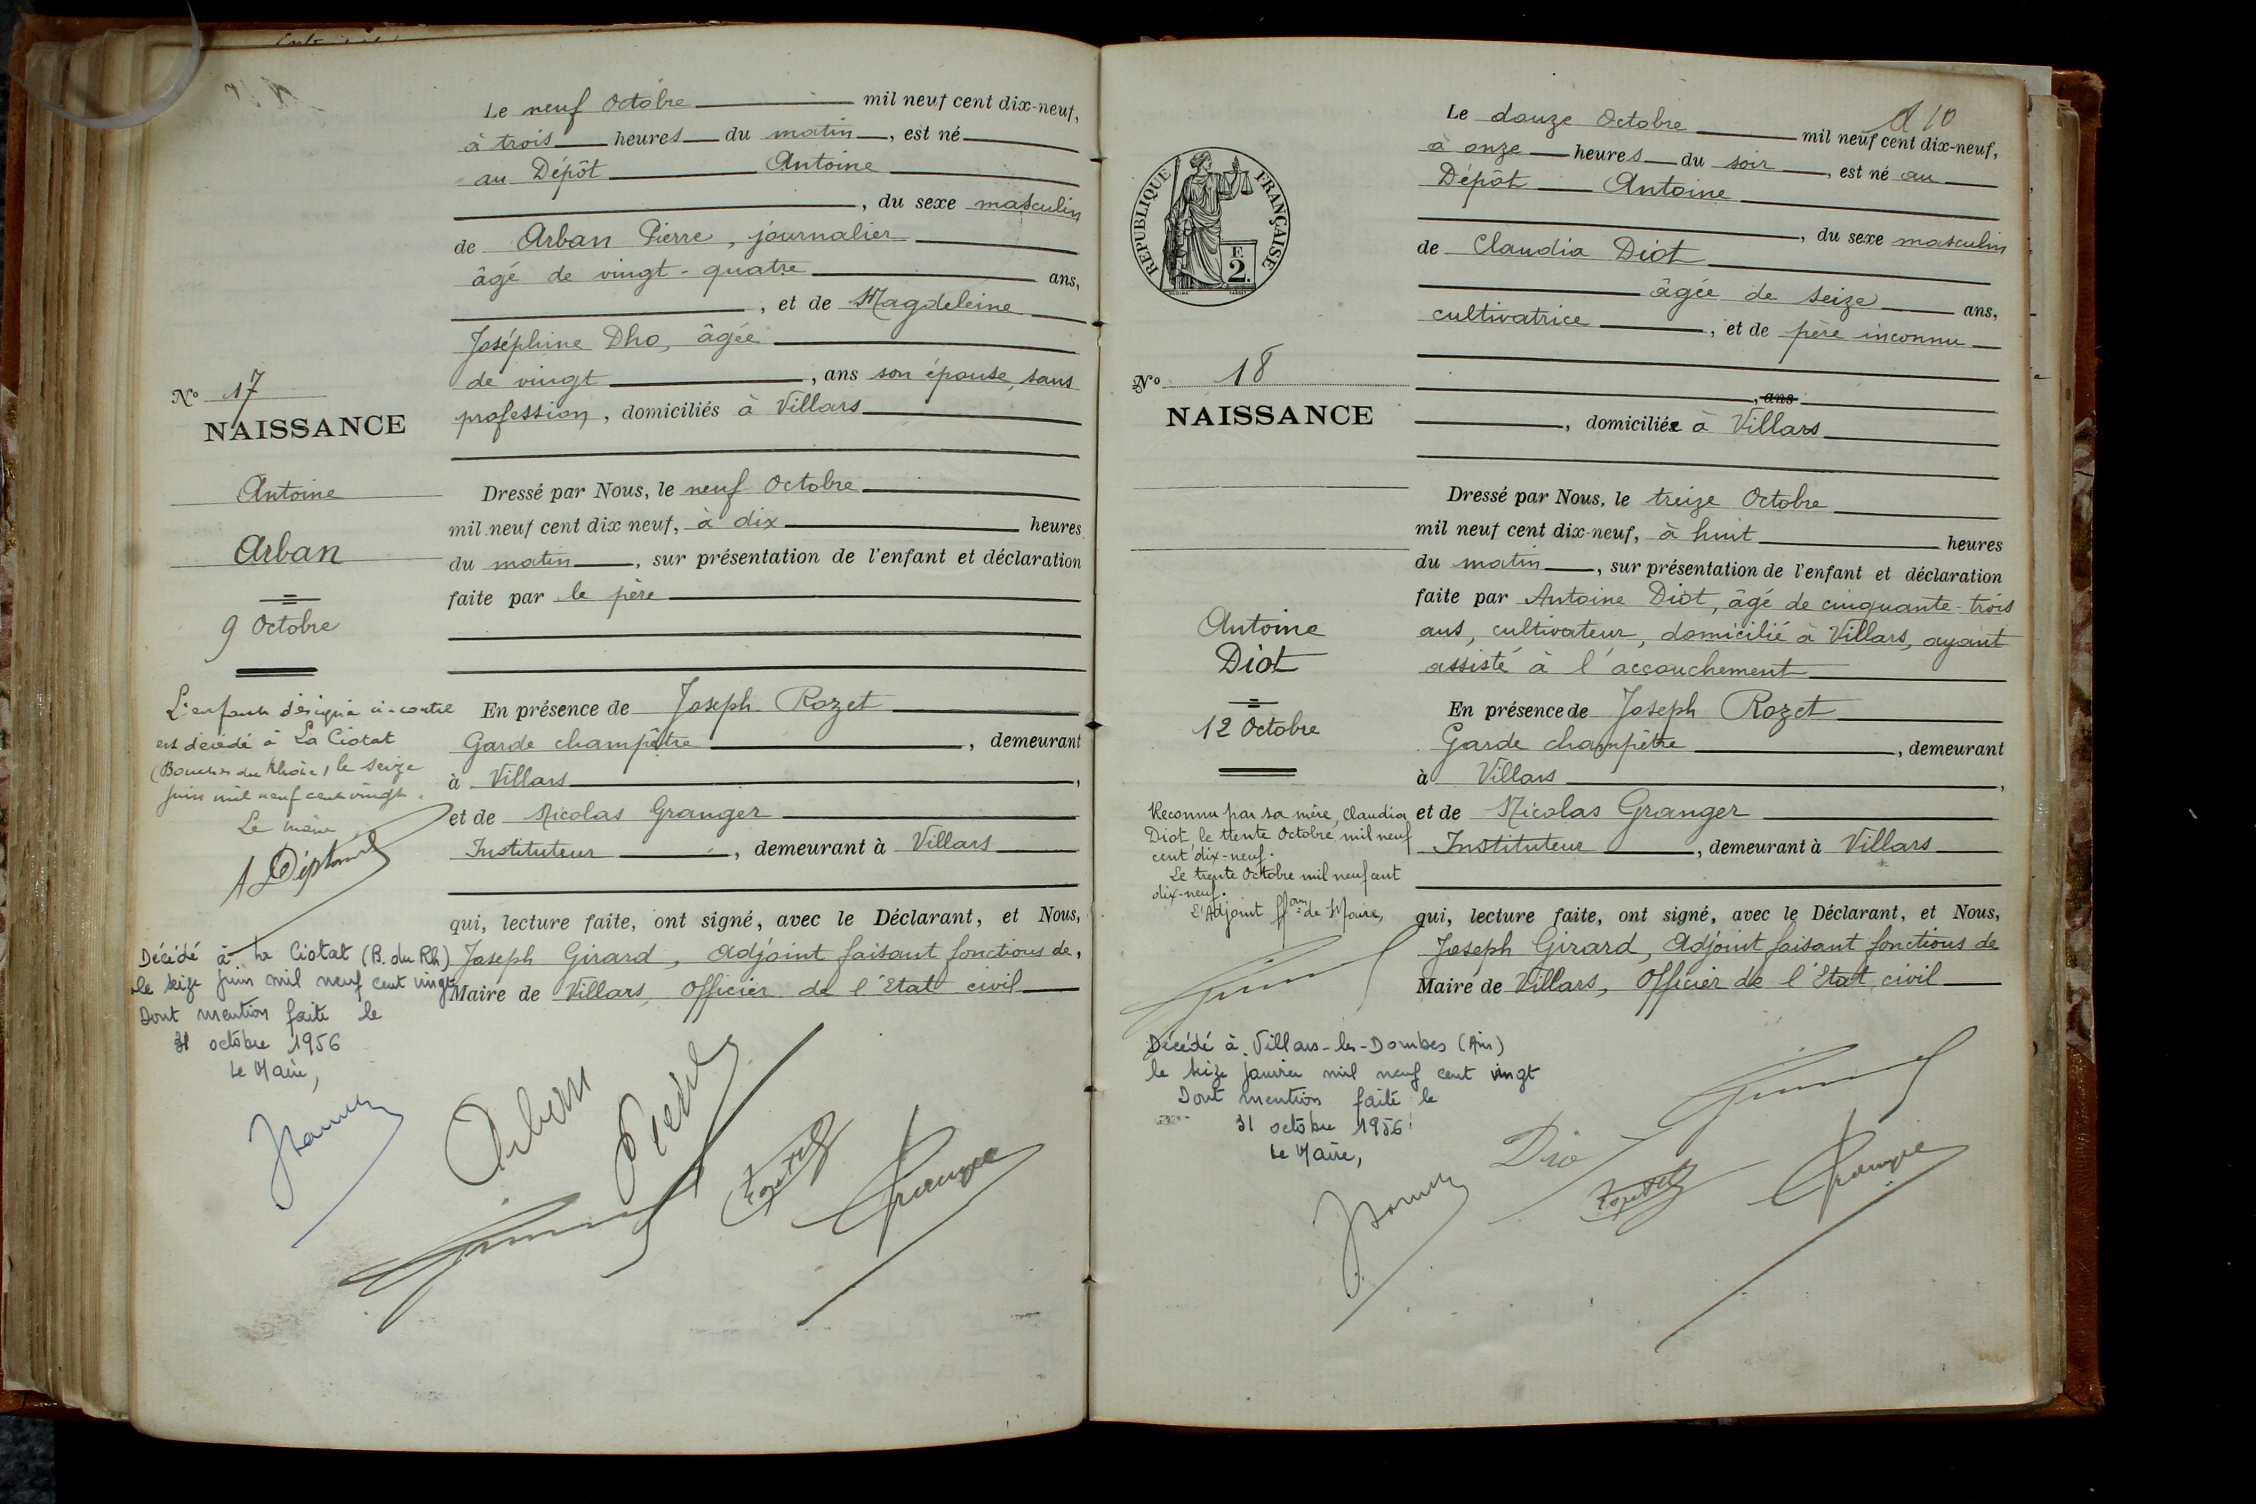 Le neuf Octobre mil neuf cent dix-neuf,
à trois heures du matin, est né
au Dépôt Antoine
, du sexe masculin
de Arban Pierre, journalier
âgé de vingt-quatre ans,
, et de Magdeleine
Joséphine Dho, âgée
de vingt, ans son épouse, sans
profession, domiciliés à Villars
N° 17
NAISSANCE
Antoine
Arban
9 Octobre
Dressé par Nous, le neuf Octobre
mil neuf cent dix neuf, à dix heures
du matin, sur présentation de l'enfant et déclaration
faite par le père
En présence de Joseph Rozet
Garde champêtre, demeurant
à Villars,
et de Nicolas Granger
Instituteur, demeurant à Villars
qui, lecture faite, ont signé, avec le Déclarant, et Nous,
Joseph Girard, Adjoint faisant fonctions de,
Maire de Villars, Officier de l'Etat civil
L'enfant désigné ci-contre
est décédé à La Ciotat
(Bouches du Rhône) le seize
juin mil neuf cent vingt.
Le Maire
Décédé à La Ciotat (B. du Rh)
le seize juin mil neuf cent vingt
Dont mention faite le
31 octobre 1956
Le Maire,
Arban Pierre
A 10
Le douze Octobre mil neuf cent dix-neuf,
à onze heures du soir, est né au
Dépôt Antoine
, du sexe masculin
de Claudia Diot
âgée de seize ans,
cultivatrice, et de père inconnu
, ans
, domiciliée à Villars
REPUBLIQUE FRANÇAISE
F
2
N° 18
NAISSANCE
Antoine
Diot
12 Octobre
Dressé par Nous, le treize Octobre
mil neuf cent dix-neuf, à huit heures
du matin, sur présentation de l'enfant et déclaration
faite par Antoine Diot, âgé de cinquante-trois
ans, cultivateur, domicilié à Villars, ayant
assisté à l'accouchement
En présence de Joseph Rozet
Garde champêtre, demeurant
à Villars,
et de Nicolas Granger
Instituteur, demeurant à Villars
qui, lecture faite, ont signé, avec le Déclarant, et Nous,
Joseph Girard, Adjoint faisant fonctions de
Maire de Villars, Officier de l'Etat civil
Reconnu par sa mère, Claudia
Diot le trente Octobre mil neuf
cent dix-neuf.
Le trente Octobre mil neuf cent
dix-neuf.
L'Adjoint ff.on de Maire,
Décédé à Villars-les-Dombes (Ain)
le seize janvier mil neuf cent vingt
Dont mention faite le
31 octobre 1956
Le Maire,
Diot